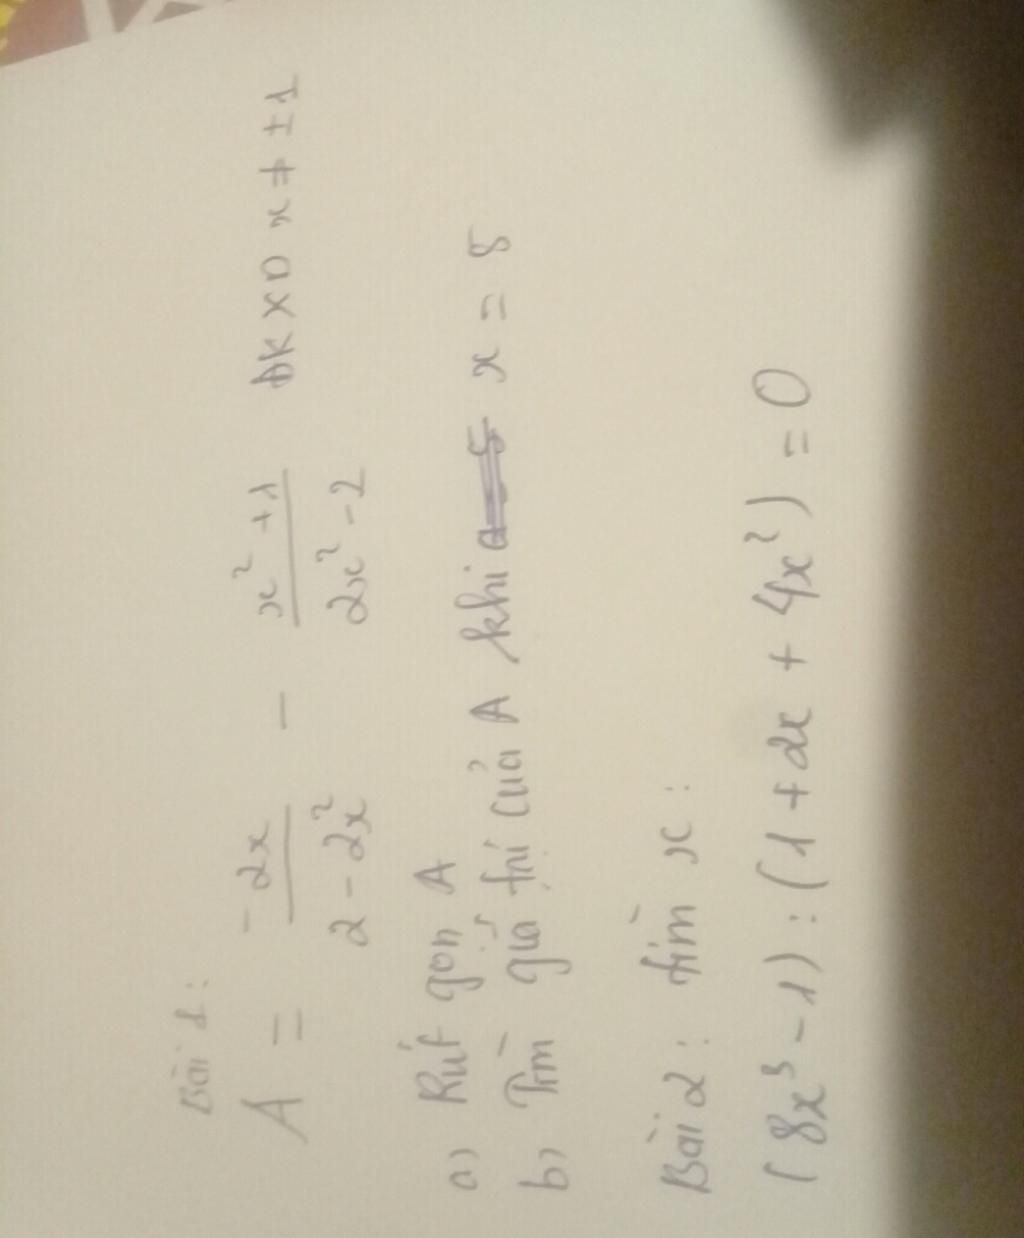 Bài 1:
A = -2x / (2 - 2x²) - (x² + 1) / (2x² - 2) ĐKXĐ x ≠ ±1
a) Rút gọn A
b) Tìm giá trị của A khi x = 5
Bài 2: tìm x:
(8x³ - 1) : (1 + 2x + 4x²) = 0